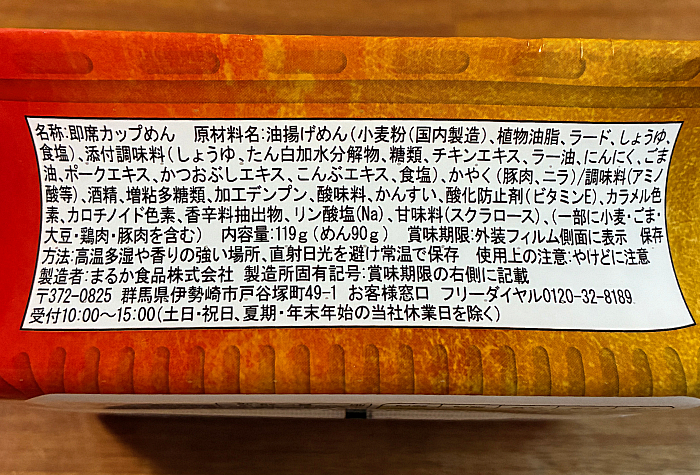 名称:即席カップめん　原材料名:油揚げめん(小麦粉(国内製造)、植物油脂、ラード、しょうゆ、
食塩)、添付調味料(しょうゆ、たん白加水分解物、糖類、チキンエキス、ラー油、にんにく、ごま
油、ポークエキス、かつおぶしエキス、こんぶエキス、食塩)、かやく(豚肉、ニラ)/調味料(アミノ
酸等)、酒精、増粘多糖類、加工デンプン、酸味料、かんすい、酸化防止剤(ビタミンE)、カラメル色
素、カロチノイド色素、香辛料抽出物、リン酸塩(Na)、甘味料(スクラロース)、(一部に小麦・ごま・
大豆・鶏肉・豚肉を含む)　内容量:119g(めん90g)　賞味期限:外装フィルム側面に表示　保存
方法:高温多湿や香りの強い場所、直射日光を避け常温で保存　使用上の注意:やけどに注意
製造者:まるか食品株式会社　製造所固有記号:賞味期限の右側に記載
〒372-0825 群馬県伊勢崎市戸谷塚町49-1 お客様窓口　フリーダイヤル0120-32-8189
受付10:00～15:00(土日・祝日、夏期・年末年始の当社休業日を除く)